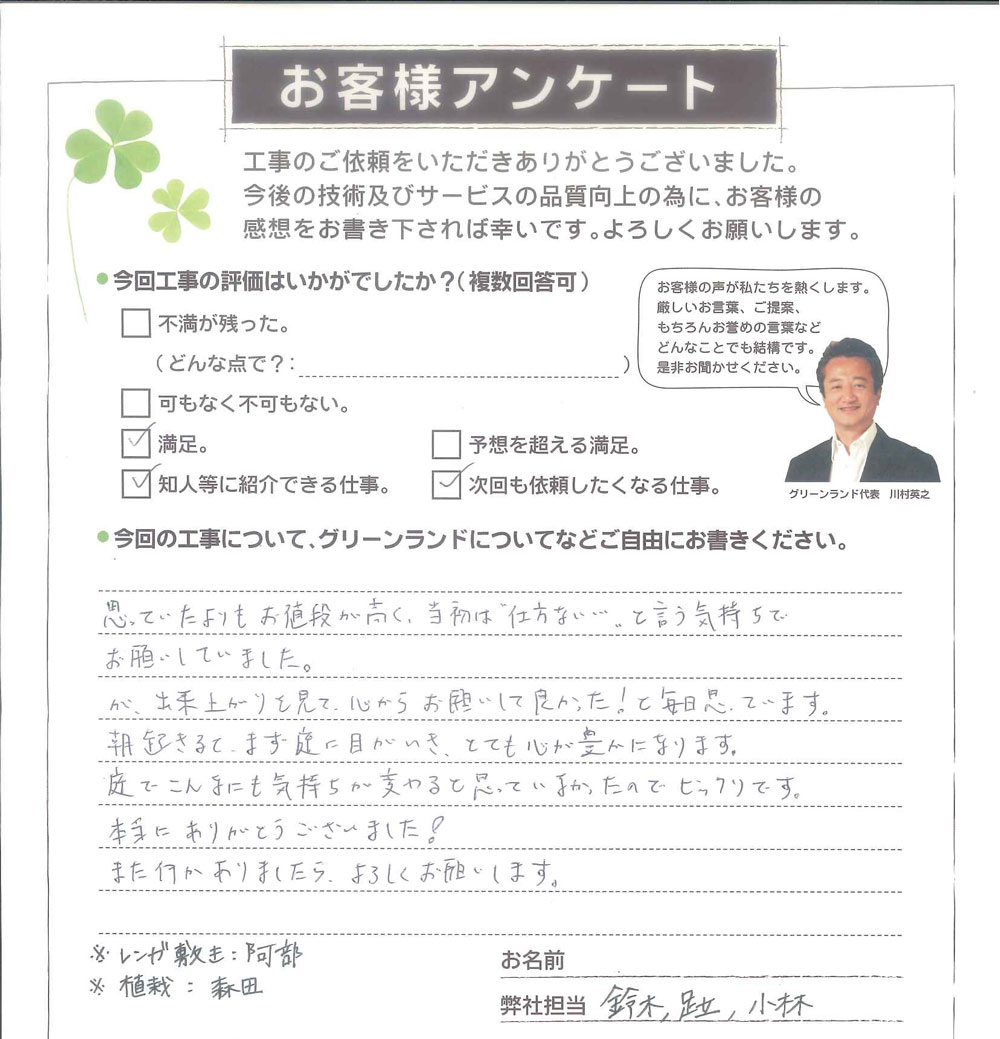 お客様アンケート
工事のご依頼をいただきありがとうございました。
今後の技術及びサービスの品質向上の為に、お客様の
感想をお書き下されば幸いです。よろしくお願いします。
今回工事の評価はいかがでしたか？（複数回答可）
不満が残った。
（どんな点で？：　）
可もなく不可もない。
満足。
予想を超える満足。
知人等に紹介できる仕事。
次回も依頼したくなる仕事。
お客様の声が私たちを熱くします。
厳しいお言葉、ご提案、
もちろんお誉めの言葉など
どんなことでも結構です。
是非お聞かせください。
グリーンランド代表　川村英之
今回の工事について、グリーンランドについてなどご自由にお書きください。
思っていたよりもお値段が高く、当初は“仕方ない…”と言う気持ちで
お願いしていました。
が、出来上がりを見て、心からお願いして良かった！と毎日思っています。
朝起きると、まず庭に目がいき、とても心が豊かになります。
庭でこんなにも気持ちが変わると思っていなかったのでビックリです。
本当にありがとうございました！
また何かありましたら、よろしくお願いします。
※レンガ敷き：阿部
※植栽：森田
お名前
弊社担当　鈴木,足立,小林